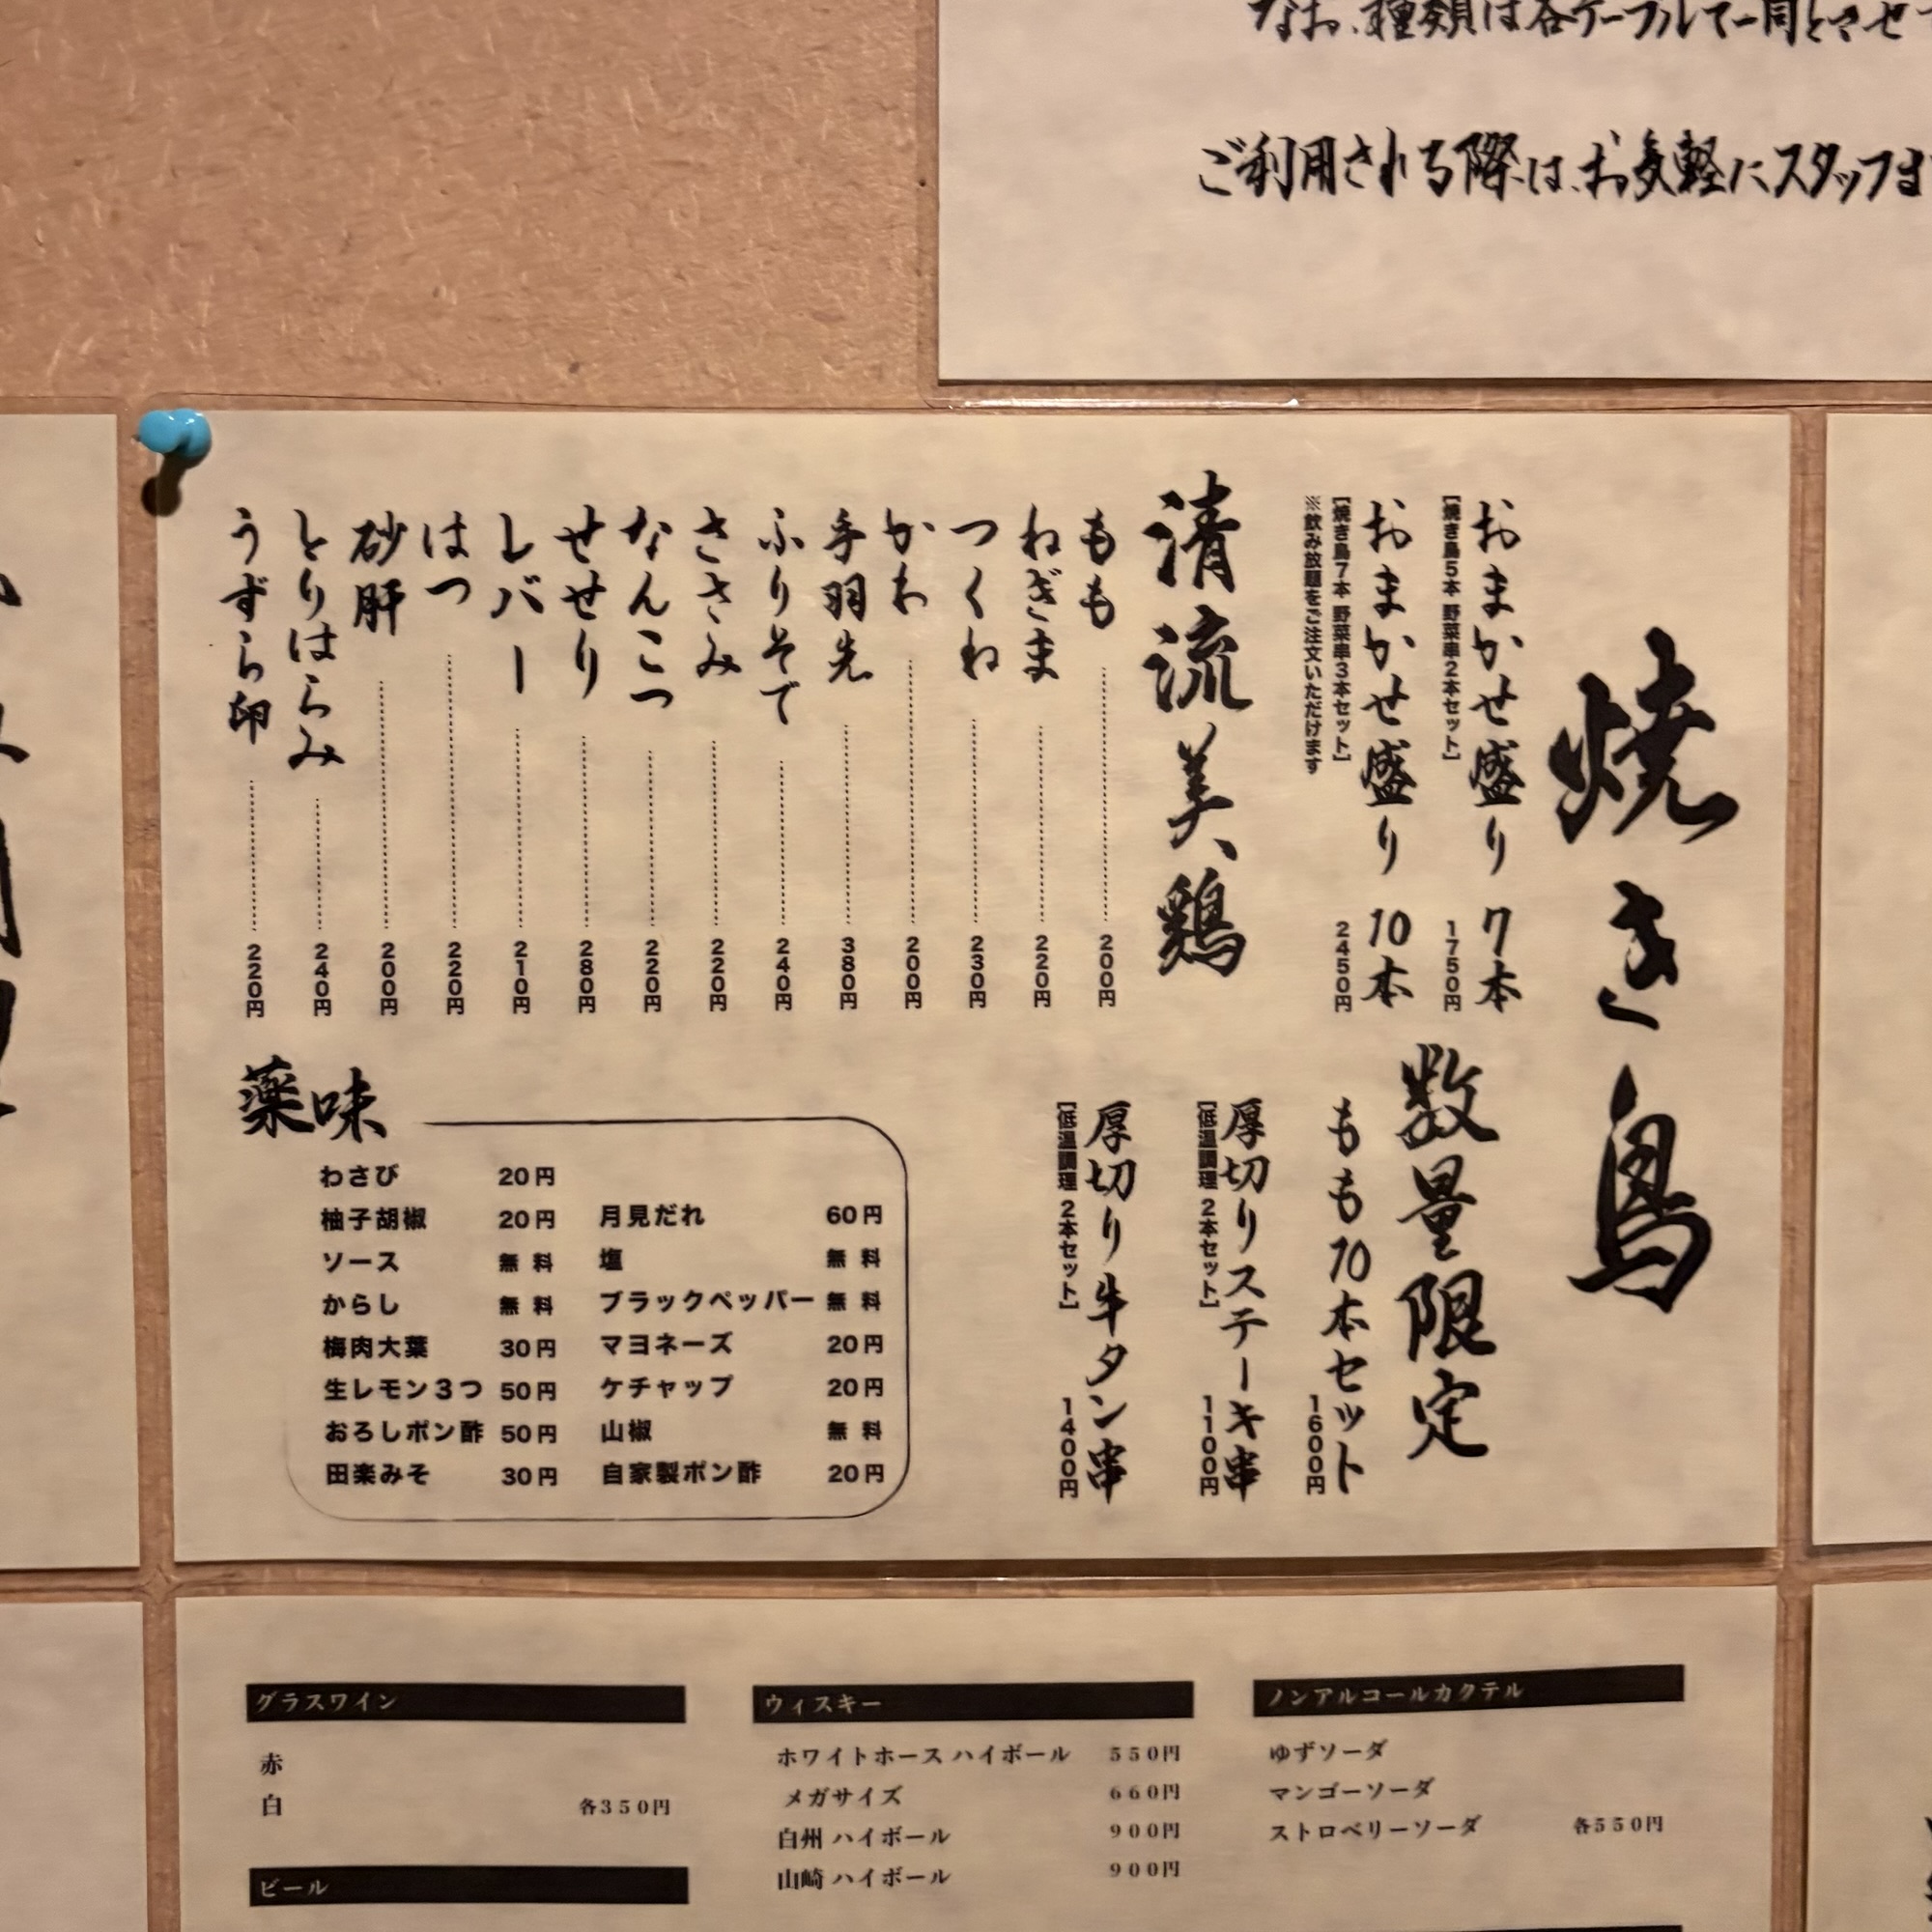 なお、種類は各テーブルで一同とさせ
ご利用される際は、お気軽にスタッフま
焼き鳥
おまかせ盛り 7本
[焼き鳥5本 野菜串2本セット]
1750円
おまかせ盛り 10本
[焼き鳥7本 野菜串3本セット]
2450円
※飲み放題をご注文いただけます
清流美鶏
もも 200円
ねぎま 220円
つくね 230円
かわ 200円
手羽先 380円
ふりそで 240円
ささみ 220円
なんこつ 220円
せせり 280円
レバー 210円
はつ 220円
砂肝 200円
とりはらみ 240円
うずら卵 220円
数量限定
もも10本セット
1600円
厚切りステーキ串
[低温調理 2本セット] 1100円
厚切り牛タン串
[低温調理 2本セット] 1400円
薬味
わさび 20円
柚子胡椒 20円
ソース 無料
からし 無料
梅肉大葉 30円
生レモン3つ 50円
おろしポン酢 50円
田楽みそ 30円
月見だれ 60円
塩 無料
ブラックペッパー 無料
マヨネーズ 20円
ケチャップ 20円
山椒 無料
自家製ポン酢 20円
グラスワイン
赤
白 各350円
ビール
ウィスキー
ホワイトホース ハイボール 550円
メガサイズ 660円
白州 ハイボール 900円
山崎 ハイボール 900円
ノンアルコールカクテル
ゆずソーダ
マンゴーソーダ
ストロベリーソーダ 各550円